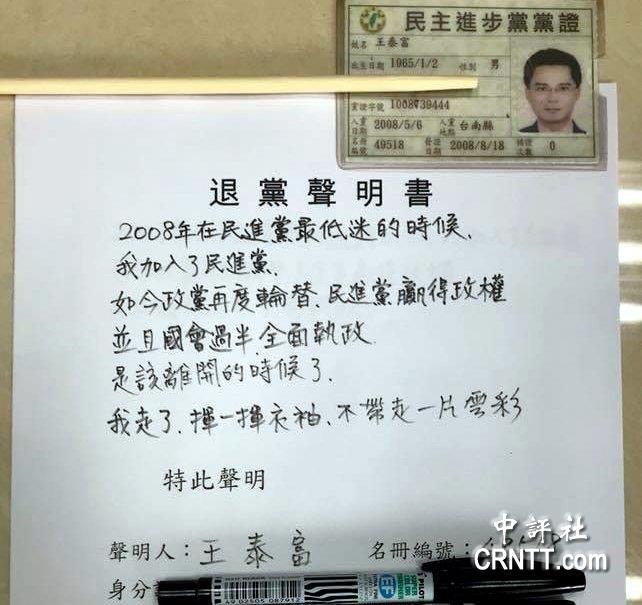 民主進步黨黨證
姓名 王泰富
出生日期 1965/1/2 性別 男
黨證字號 1008739444
入黨日期 2008/5/6 入黨地點 台南縣
名冊編號 49518 發證日期 2008/8/18 補證次數 0
退黨聲明書
2008年在民進黨最低迷的時候,
我加入了民進黨.
如今政黨再度輪替、民進黨贏得政權
並且國會過半,全面執政.
是該離開的時候了.
我走了、揮一揮衣袖、不帶走一片雲彩
特此聲明
聲明人：王泰富 名冊編號：
身分
中評社
CRNTT.com
PILOT
4 902505 087912